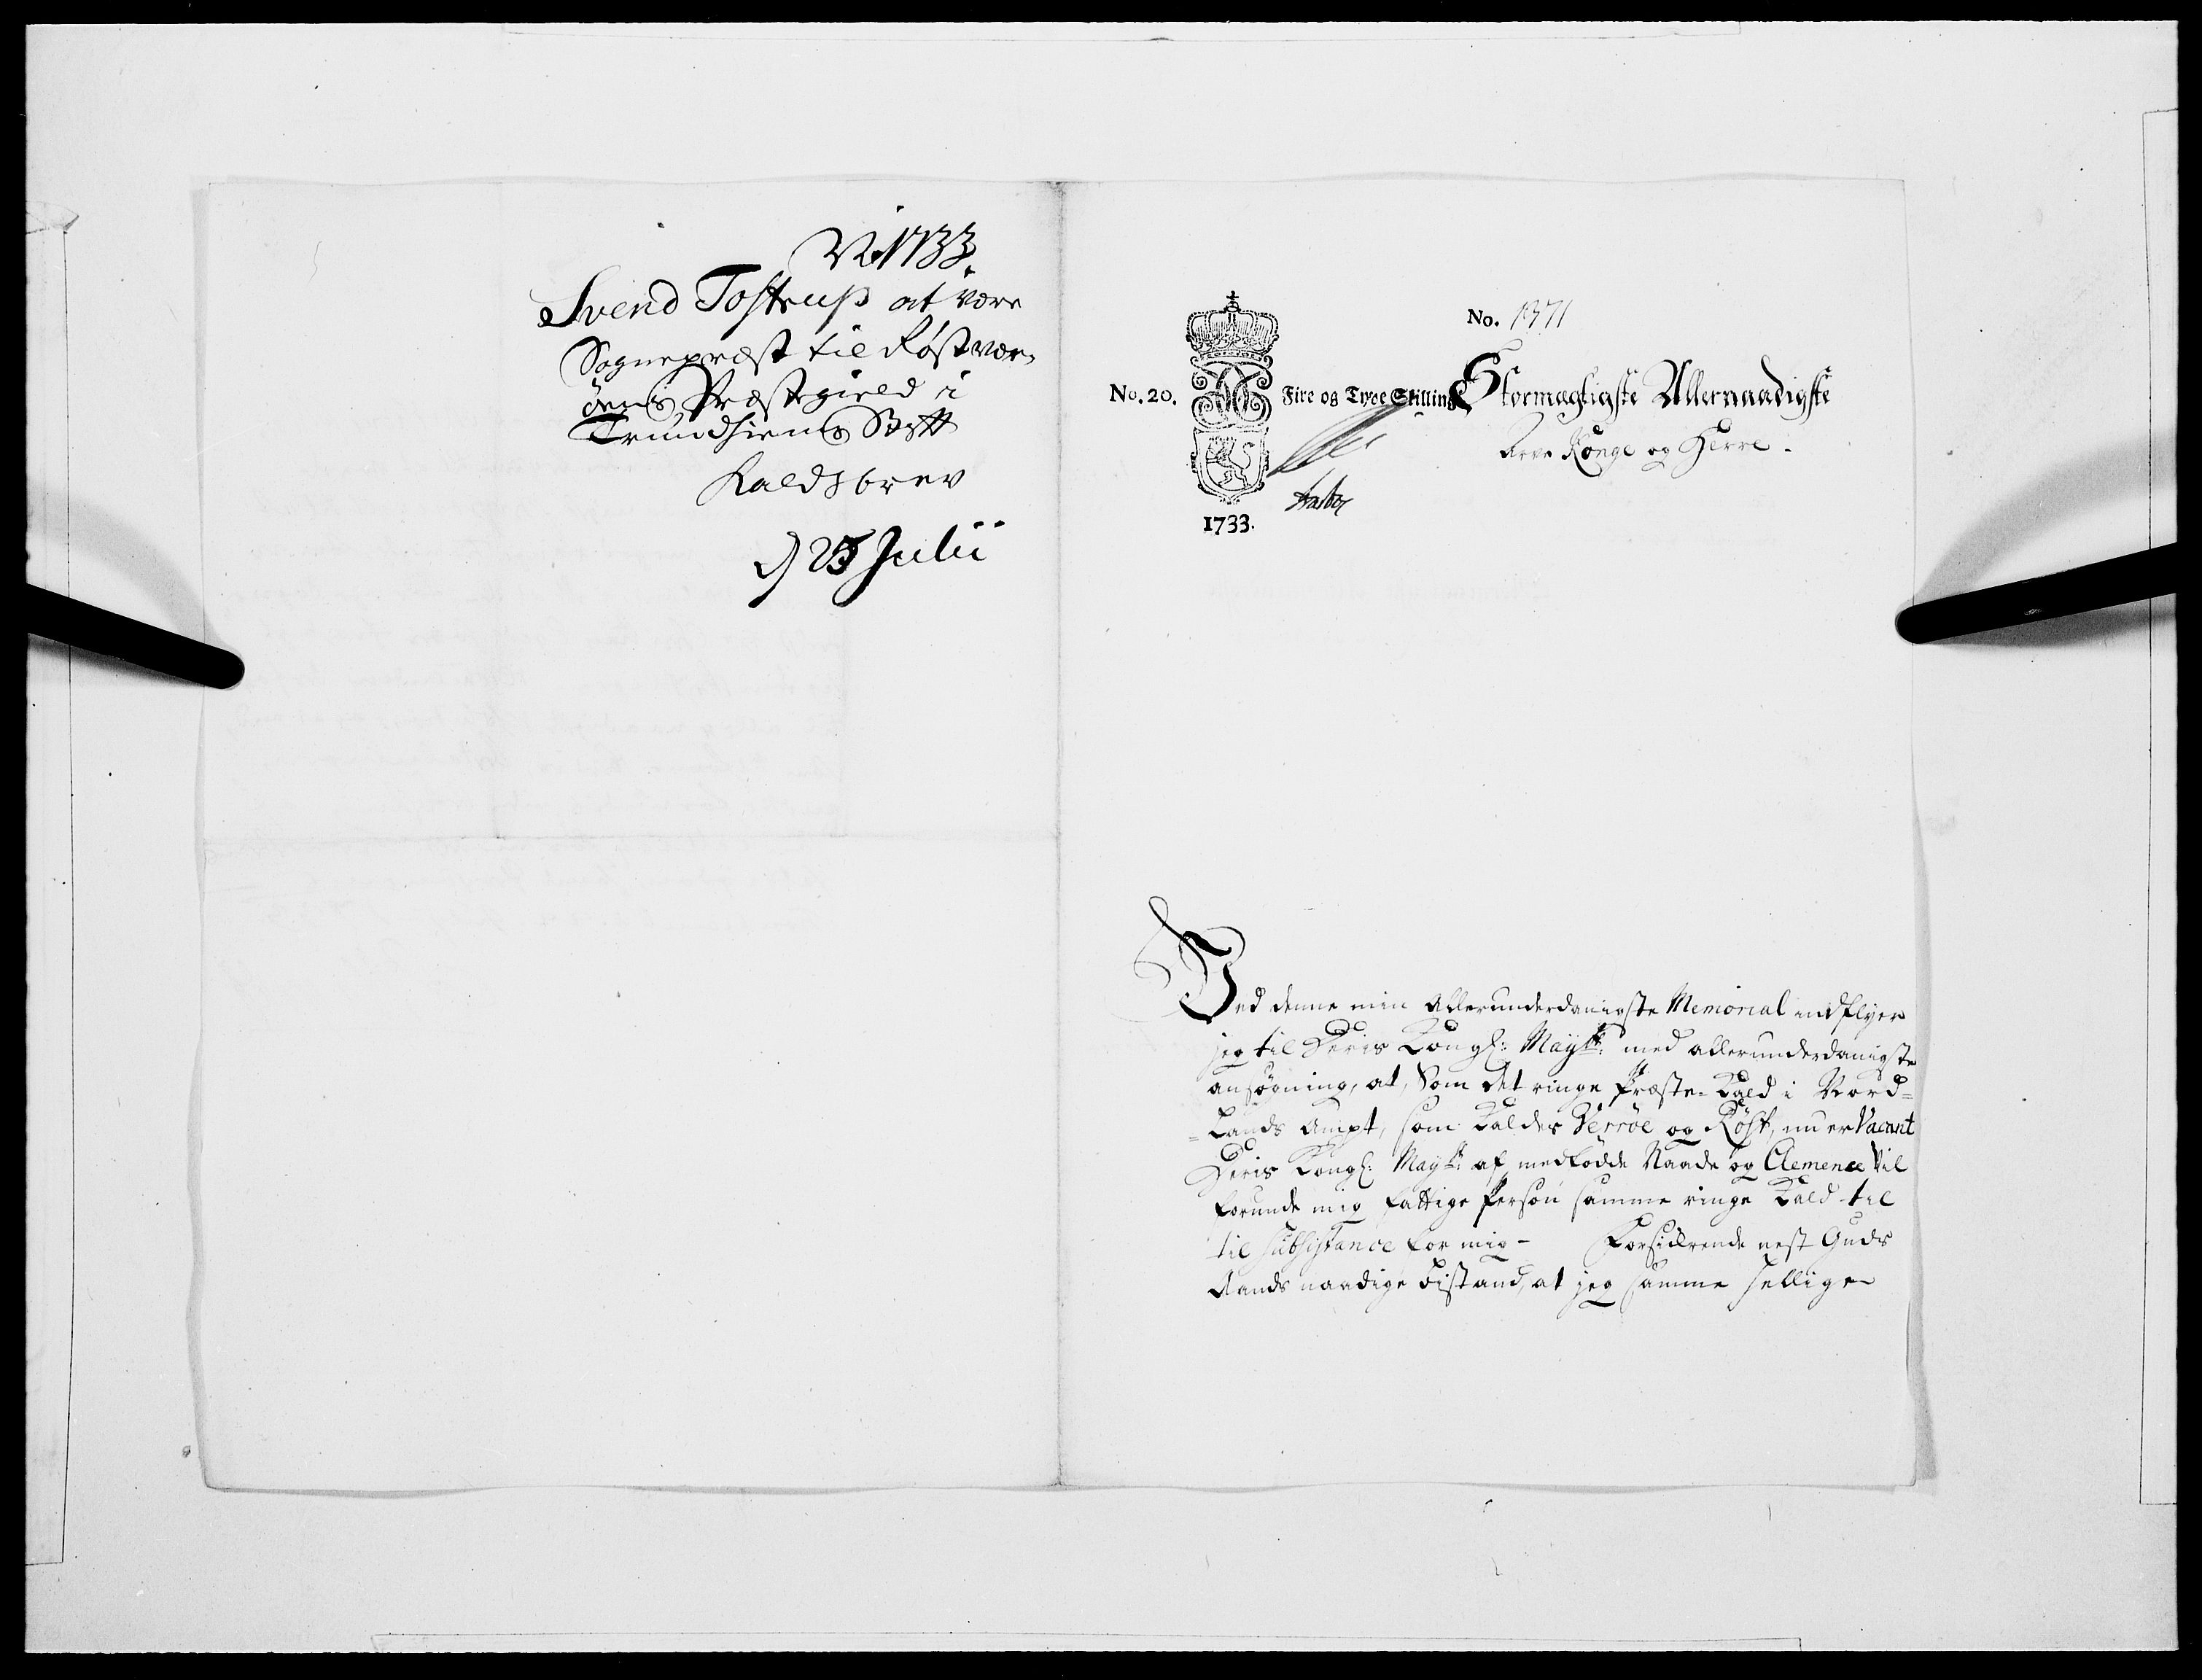 1733.
Svend Tostrup at være
Sognepræst til Røst vær-
øens Præstegield i
Trundhiems Stift
Kaldsbrev
d 25 Julii
No. 1371
No. 20. Fire og Tyve Skilling
1733.
Stormægtigste Allernaadigste
Arve Konge og Herre.
Ved denne min Allerunderdanigste Memorial indflyer
jeg til Deris Kongl: Mayst: med allerunderdanigste
ansøgning, at, Som det ringe Præste-Kald i Nord=
=Lands Ampt, som Kaldes Verrøe og Røst, nu er Vacant
Deris Kongl: Mayst: af medfødde Naade og Clemence Vil
forunde mig fattige Person samme ringe Kald til
til subsistance for mig - Forsickrende nest Guds
Aands naadige bistand, at jeg samme